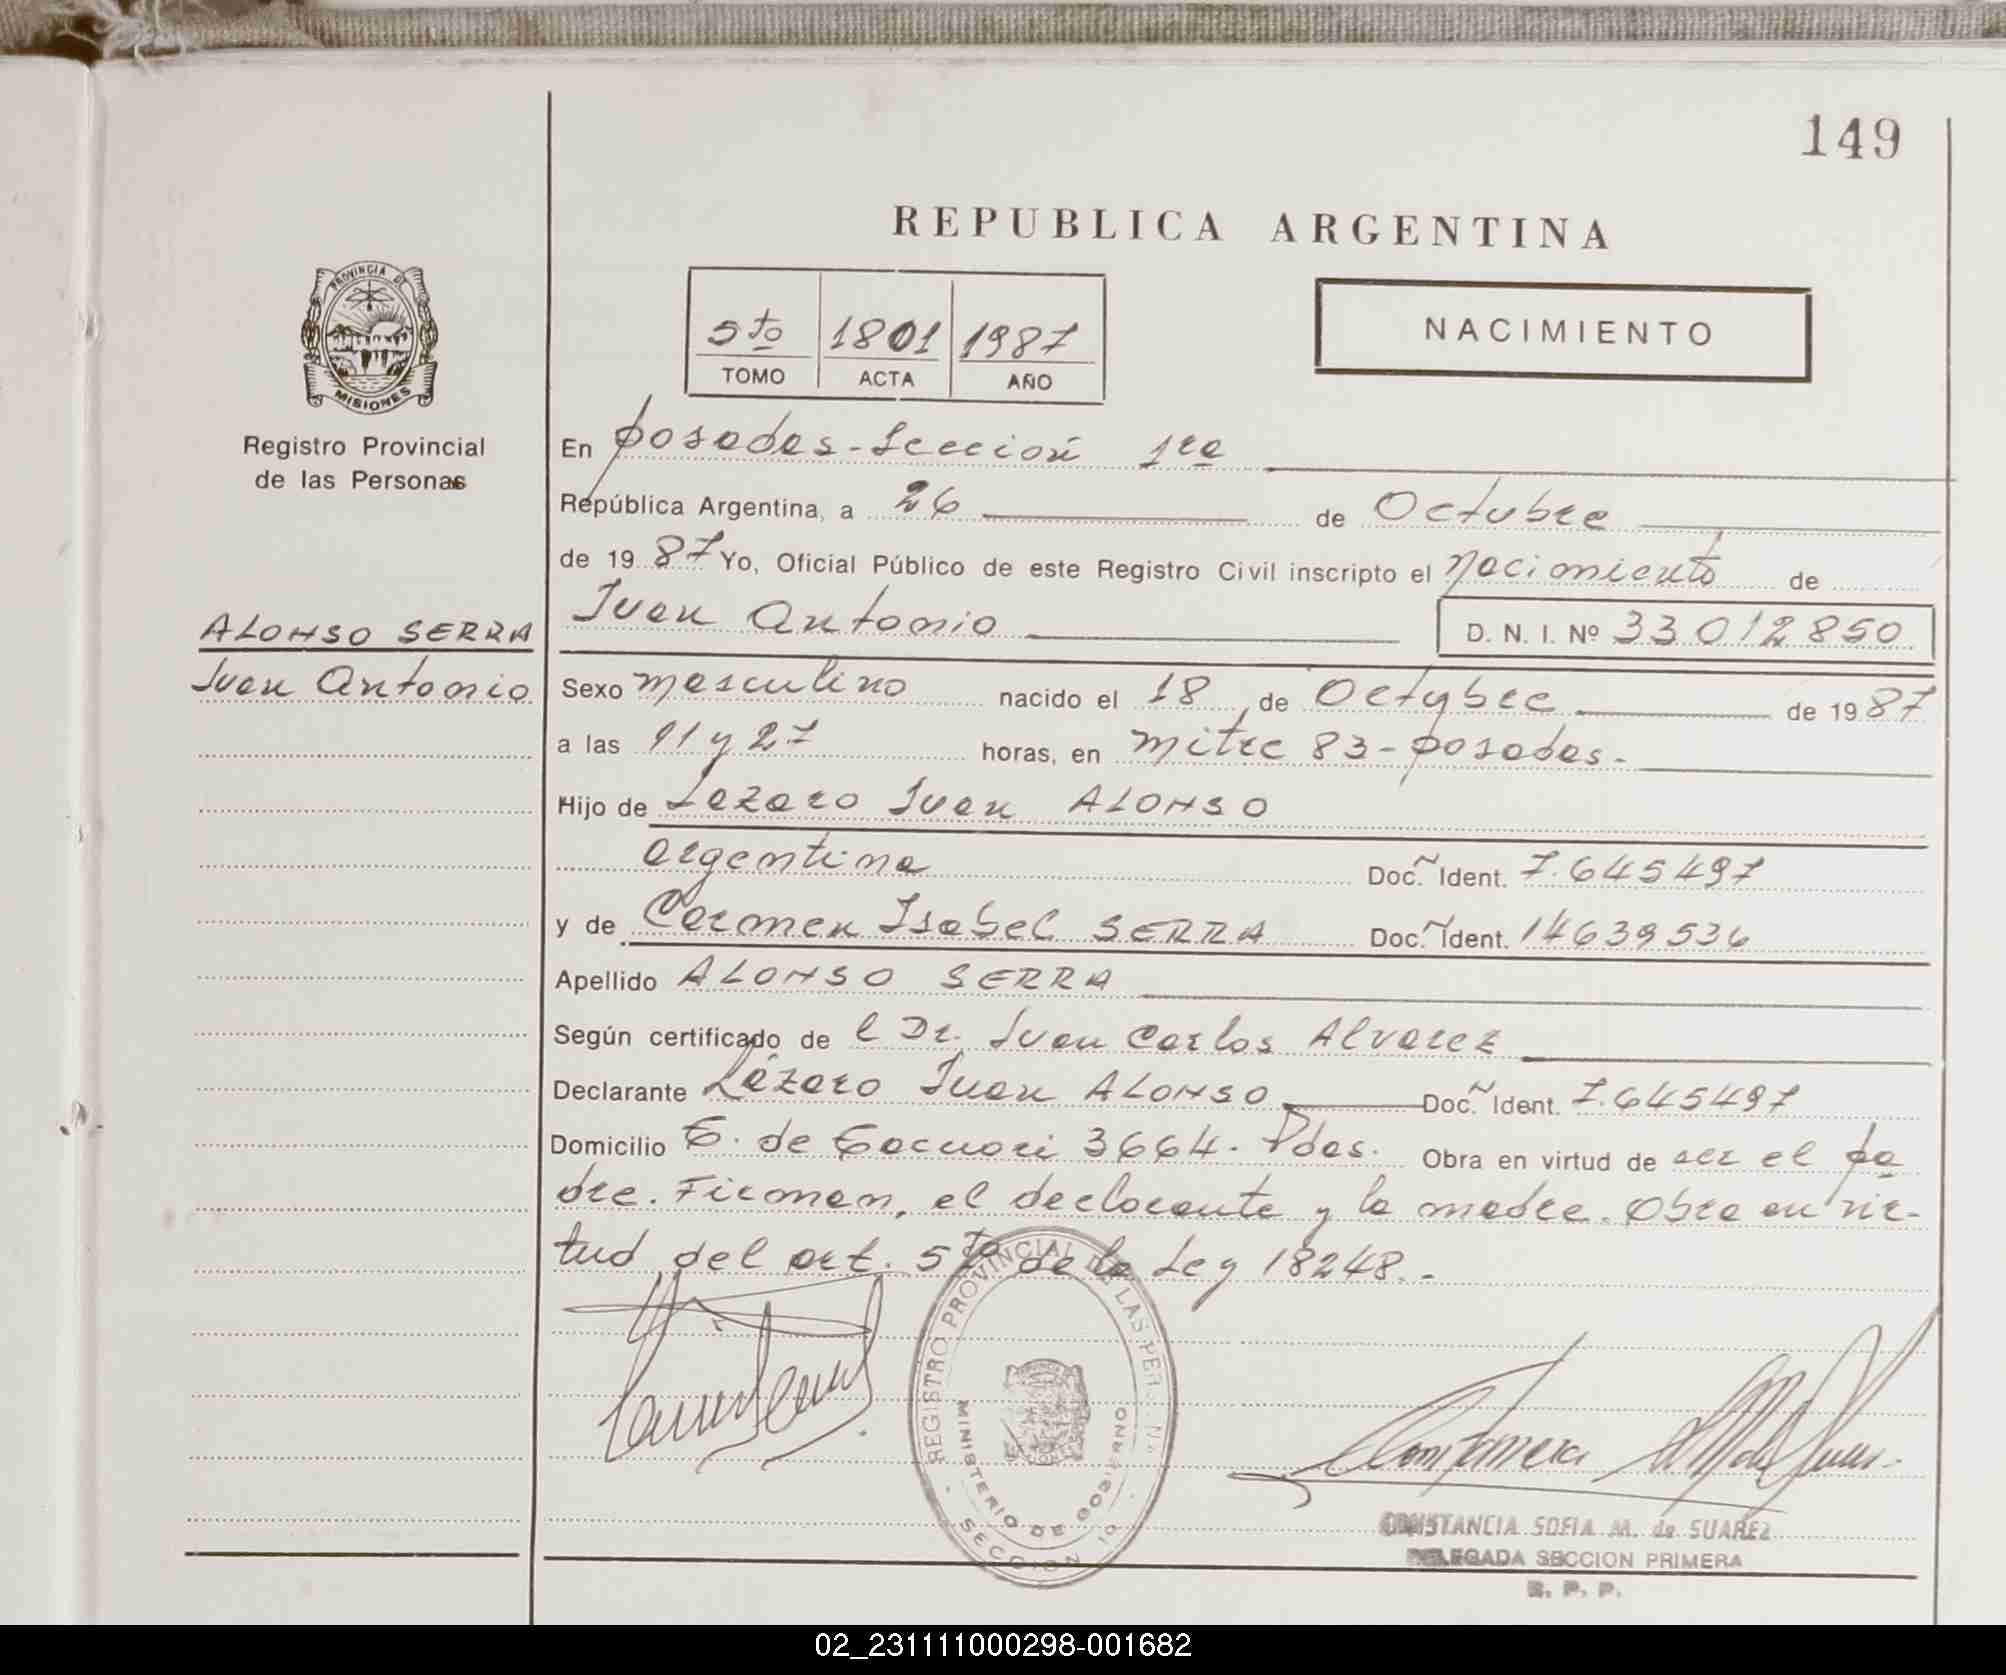 149
REPUBLICA ARGENTINA
PROVINCIA DE
MISIONES
Registro Provincial
de las Personas
5to 1801 1987
TOMO ACTA AÑO
NACIMIENTO
En posadas - Sección 1ra
República Argentina, a 26 de Octubre
de 1987 Yo, Oficial Público de este Registro Civil inscripto el nacimiento de
Juan Antonio D. N. I. Nº 33012850
ALONSO SERRA
Juan Antonio
Sexo masculino nacido el 18 de Octubre de 1987
a las 11 y 27 horas, en mitre 83 - posadas.
Hijo de Lazaro Juan ALONSO
argentina Doc. Ident. 7.645497
y de Carmen Isabel SERRA Doc. Ident. 14639536
Apellido ALONSO SERRA
Según certificado de l Dr. Juan Carlos Alvarez
Declarante Lázaro Juan ALONSO Doc. Ident. 7.645497
Domicilio de 3664. Pdas. Obra en virtud de ser el pa
dre. Firman, el declarante y la madre. Obra en vir-
tud del art. 5to de la Ley 18248.-
REGISTRO PROVINCIAL DE LAS PERSONAS
MINISTERIO DE GOBIERNO
SECCION
CONSTANCIA SOFIA M. de SUAREZ
DELEGADA SECCION PRIMERA
R. P. P.
02_231111000298-001682